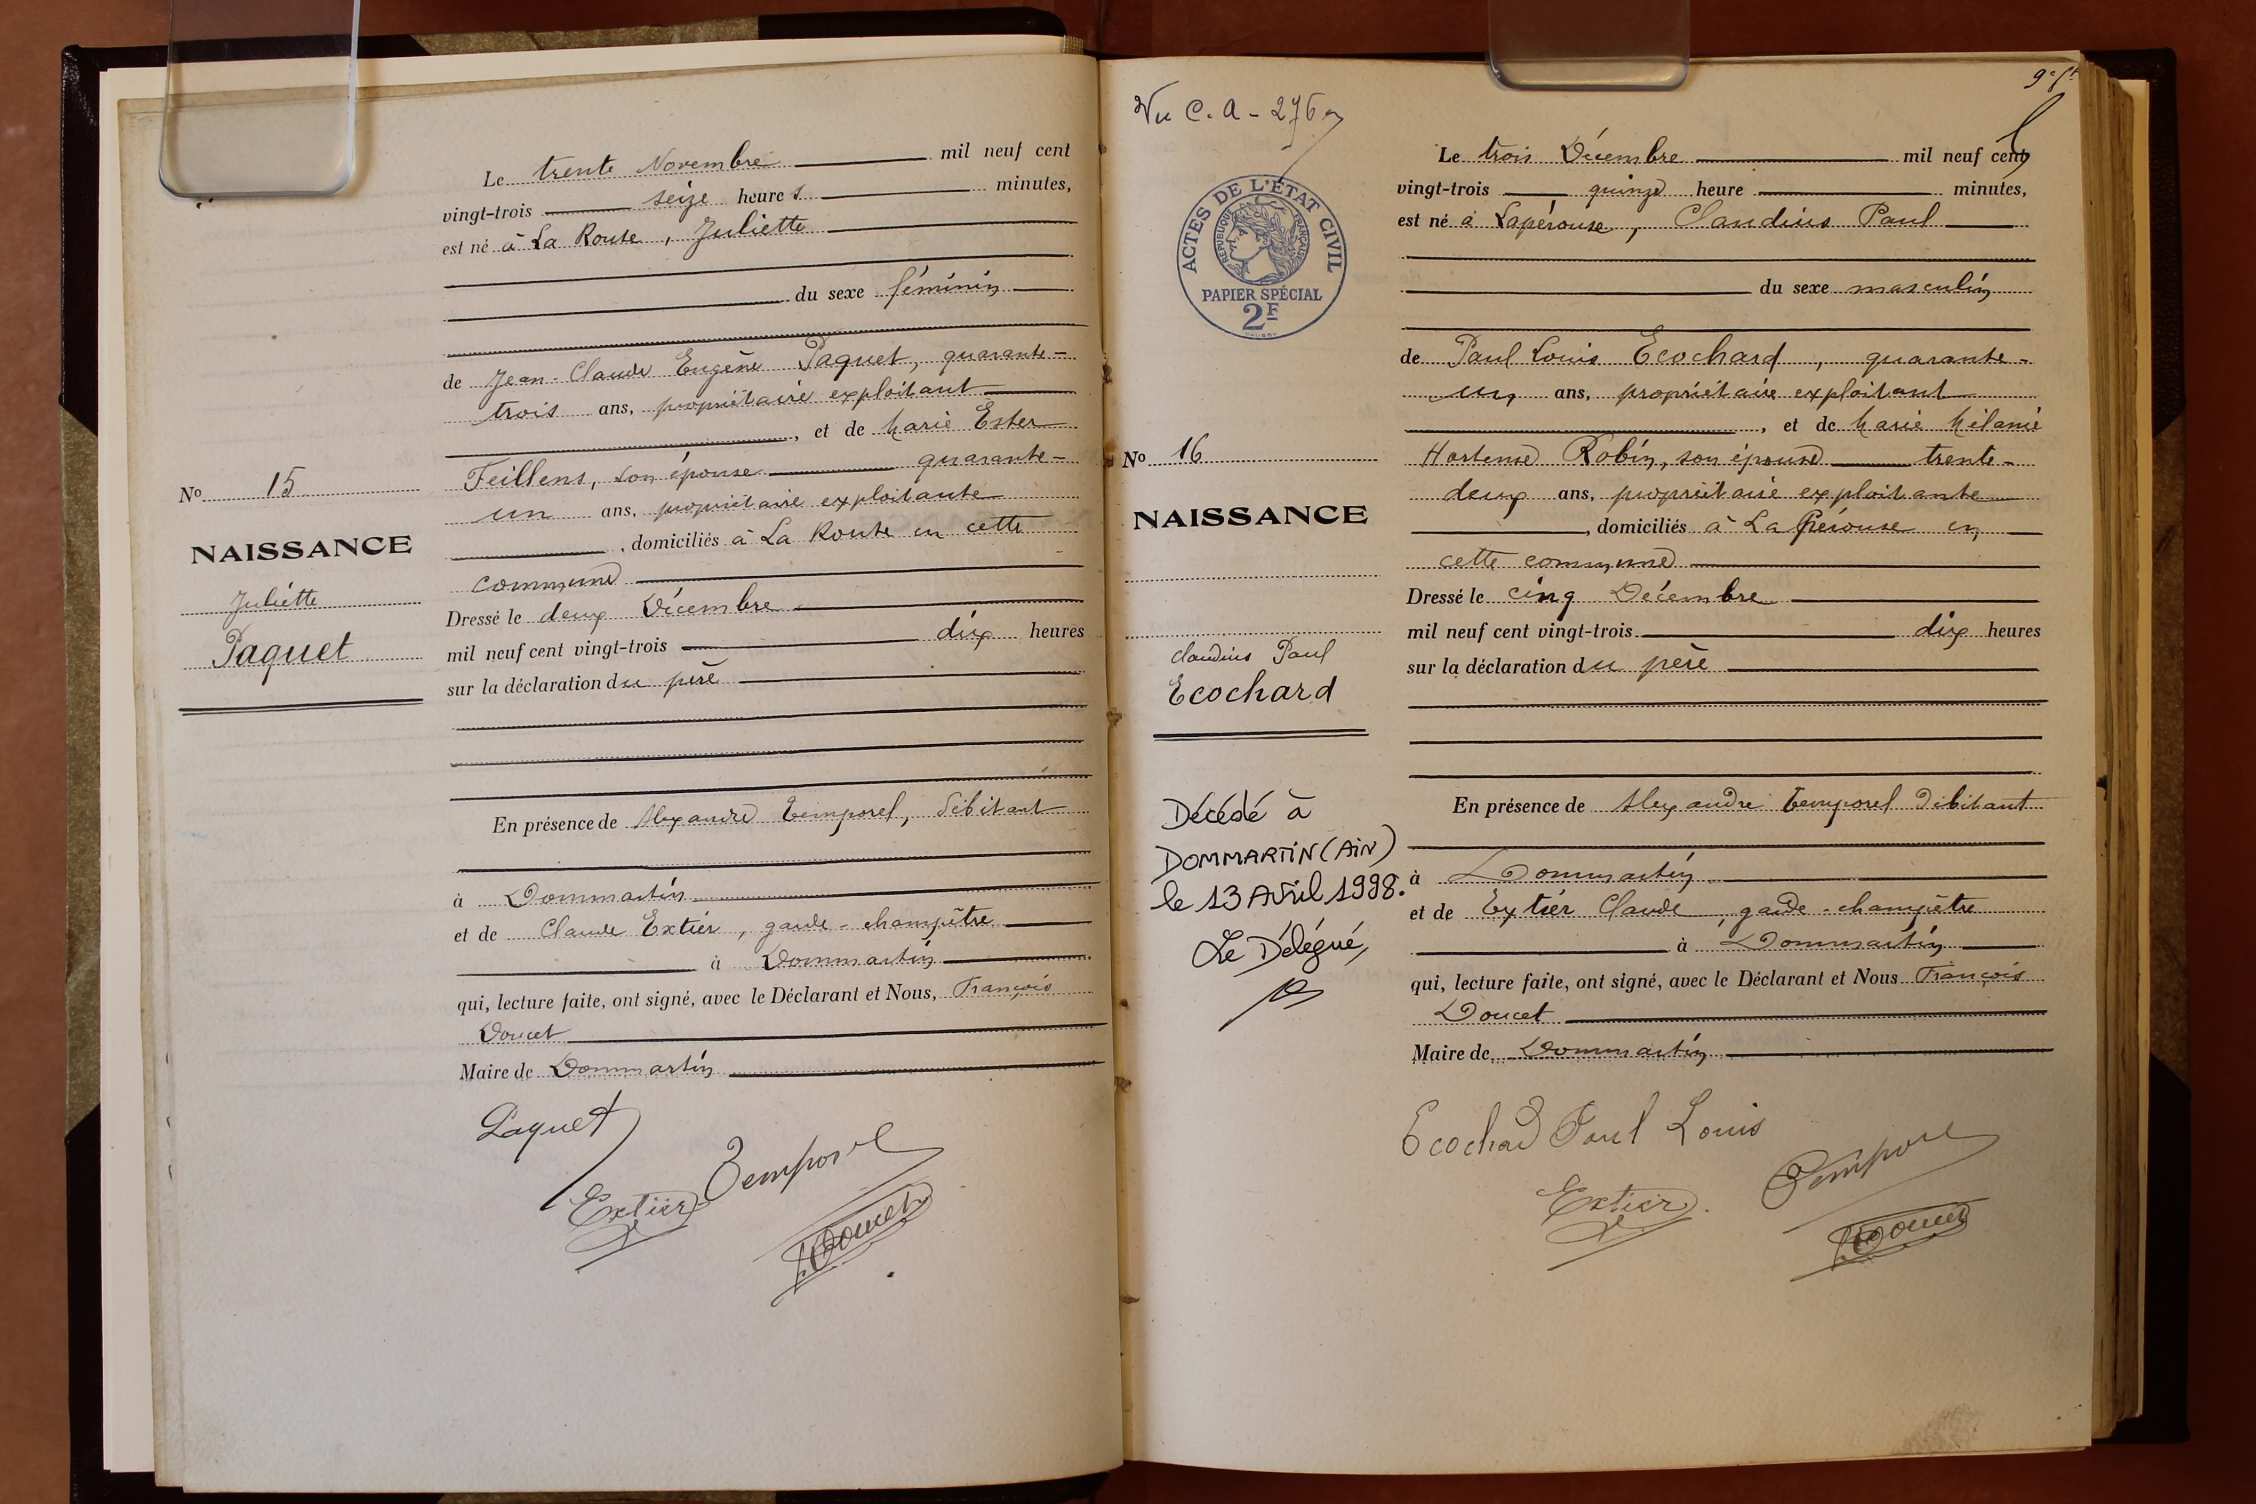 Le trente Novembre mil neuf cent
vingt-trois seize heures minutes,
est né à La Route, Juliette
du sexe féminin
de Jean-Claude Eugène Paquet, quarante-
trois ans, propriétaire exploitant
, et de Marie Ester
Feillens, son épouse quarante-
un ans, propriétaire exploitante
, domiciliés à La Route en cette
commune
Dressé le deux Décembre
mil neuf cent vingt-trois dix heures
sur la déclaration du père
En présence de Alexandre Temporel, débitant
à Dommartin
et de Claude Extier, garde-champêtre
à Dommartin
qui, lecture faite, ont signé, avec le Déclarant et Nous, François
Doucet
Maire de Dommartin
Paquet
Temporel
Extier
Doucet
No 15
NAISSANCE
Juliette
Paquet
Vu C. A - 276
ACTES DE L'ÉTAT CIVIL
RÉPUBLIQUE FRANÇAISE
PAPIER SPÉCIAL
2F
No 16
NAISSANCE
Claudius Paul
Ecochard
Décédé à
DOMMARTIN (AIN)
le 13 Avril 1998.
Le Délégué,
9e ft
Le trois Décembre mil neuf cent
vingt-trois quinze heure minutes,
est né à Lapérouse, Claudius Paul
du sexe masculin
de Paul Louis Ecochard, quarante-
un ans, propriétaire exploitant
, et de Marie Mélanie
Hortense Robin, son épouse trente-
deux ans, propriétaire exploitante
, domiciliés à La Pérouse en
cette commune
Dressé le cinq Décembre
mil neuf cent vingt-trois dix heures
sur la déclaration du père
En présence de Alexandre Temporel débitant
à Dommartin
et de Extier Claude, garde-champêtre
à Dommartin
qui, lecture faite, ont signé, avec le Déclarant et Nous François
Doucet
Maire de Dommartin
Ecochard Paul Louis
Temporel
Extier
Doucet